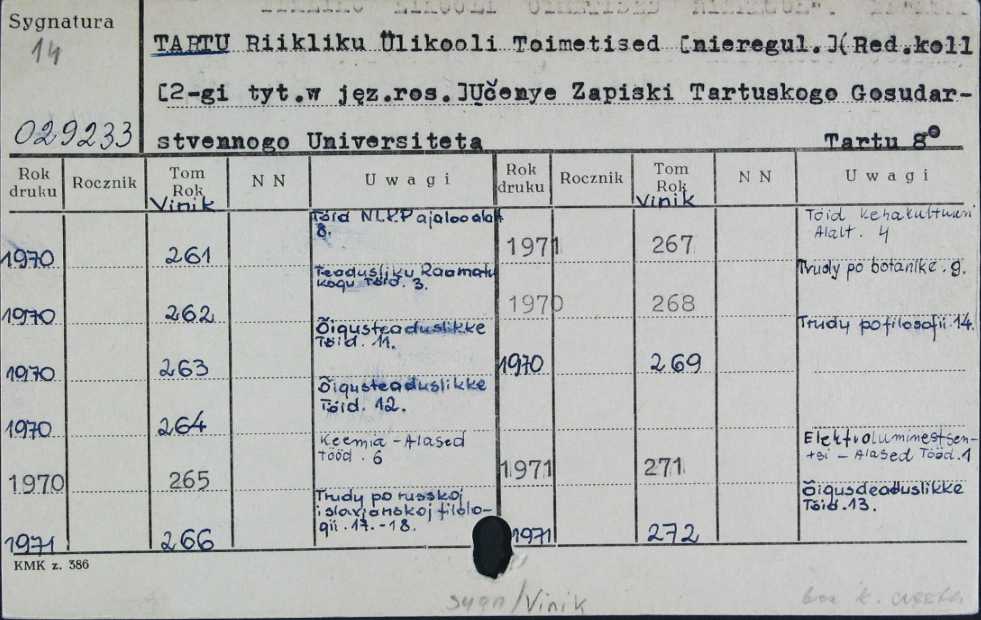 Sygnatura
14
029233
TARTU Riikliku Ülikooli Toimetised [nieregul.](Red.koll
[2-gi tyt.w jęz.ros.]Učenye Zapiski Tartuskogo Gosudar-
stvennogo Universiteta Tartu 8°
Rok druku Rocznik Tom Rok N N Uwagi Rok druku Rocznik Tom Rok N N Uwagi
Vinik Vinik
1970 261 Töid NLKP ajaloo alalt
8.
1970 262 Teadusliku Raamatu
kogu Töid. 3.
1970 263 Õigusteaduslikke
Töid. 11.
1970 264 Õigusteaduslikke
Töid. 12.
1970 265 Keemia - Alased
Tööd. 6
1971 266 Trudy po russkoj
i slavjanskoj filolo-
gii. 17.-18.
1971 267 Töid Kehakultuuri
Alalt. 4
1970 268 Trudy po botanike. 9.
1970 269 Trudy po filosofii 14.
1971 271 Elektroluminestsen-
tsi - Alased Tööd. 1
1971 272 Õigusdeaduslikke
Töid. 13.
KMK z. 386
sygn/Vinik